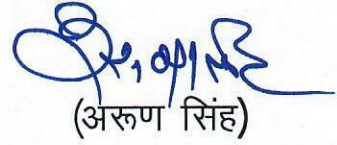 (अरूण सिंह)